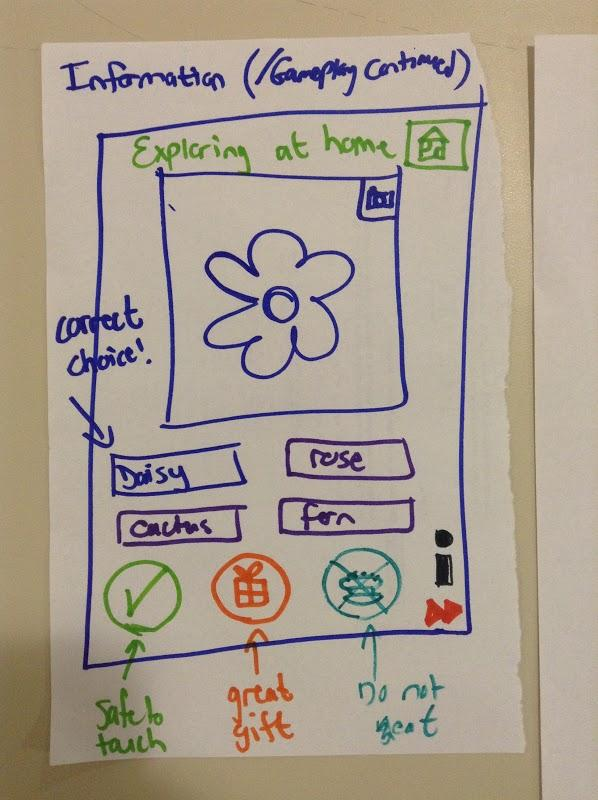 Information (/Gameplay continued)
Exploring at home
correct
choice!
Daisy
rose
cactus
fern
i
safe to
touch
great
gift
Do not
eat